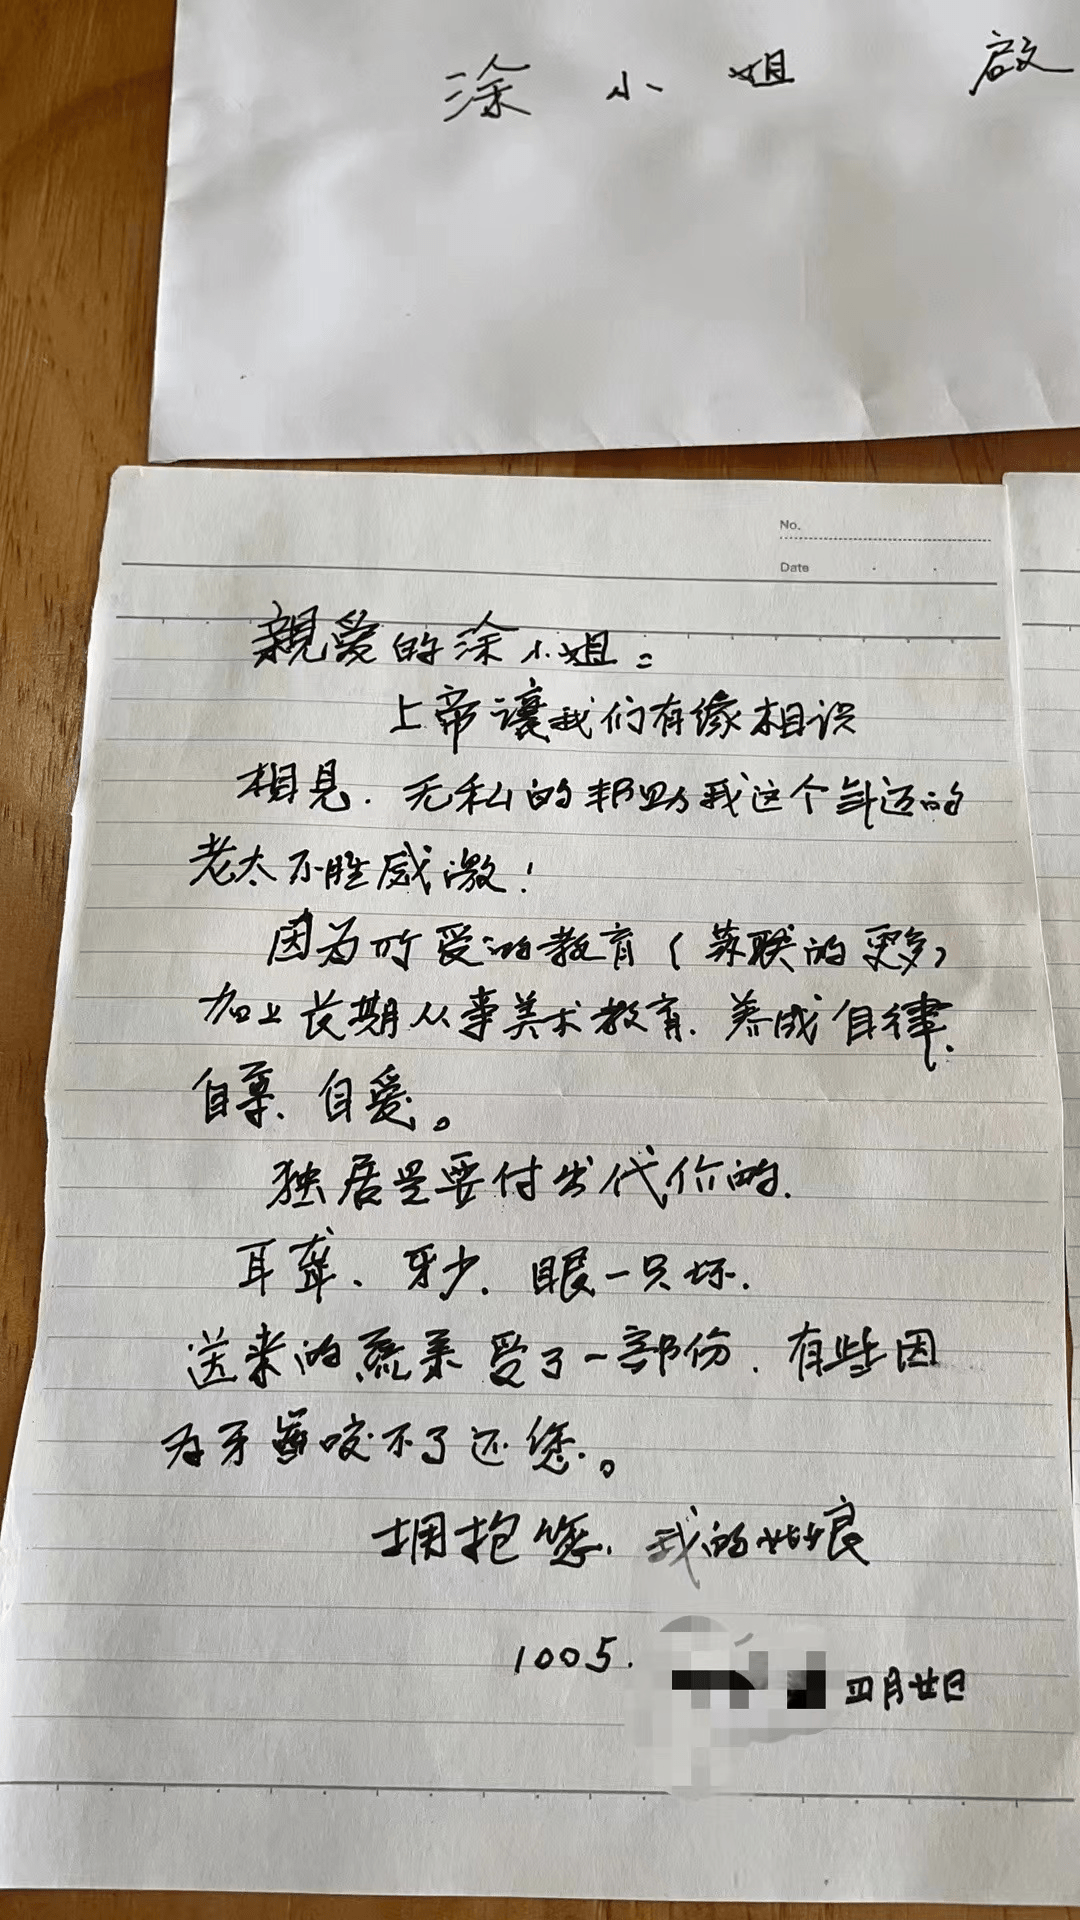 涂小姐 啟
No.
Date
親爱的涂小姐：
上帝让我们有缘相识
相见. 无私的帮助我这个年迈的
老太不胜感激！
因为所受的教育（苏联的更多）
加上长期从事美术教育. 养成自律.
自尊、自爱。
独居是要付出代价的.
耳聋、牙少. 眼一只坏.
送来的蔬菜受了一部份. 有些因
为牙齒咬不了还您。
拥抱您. 我的姑娘
1005.
四月廿日